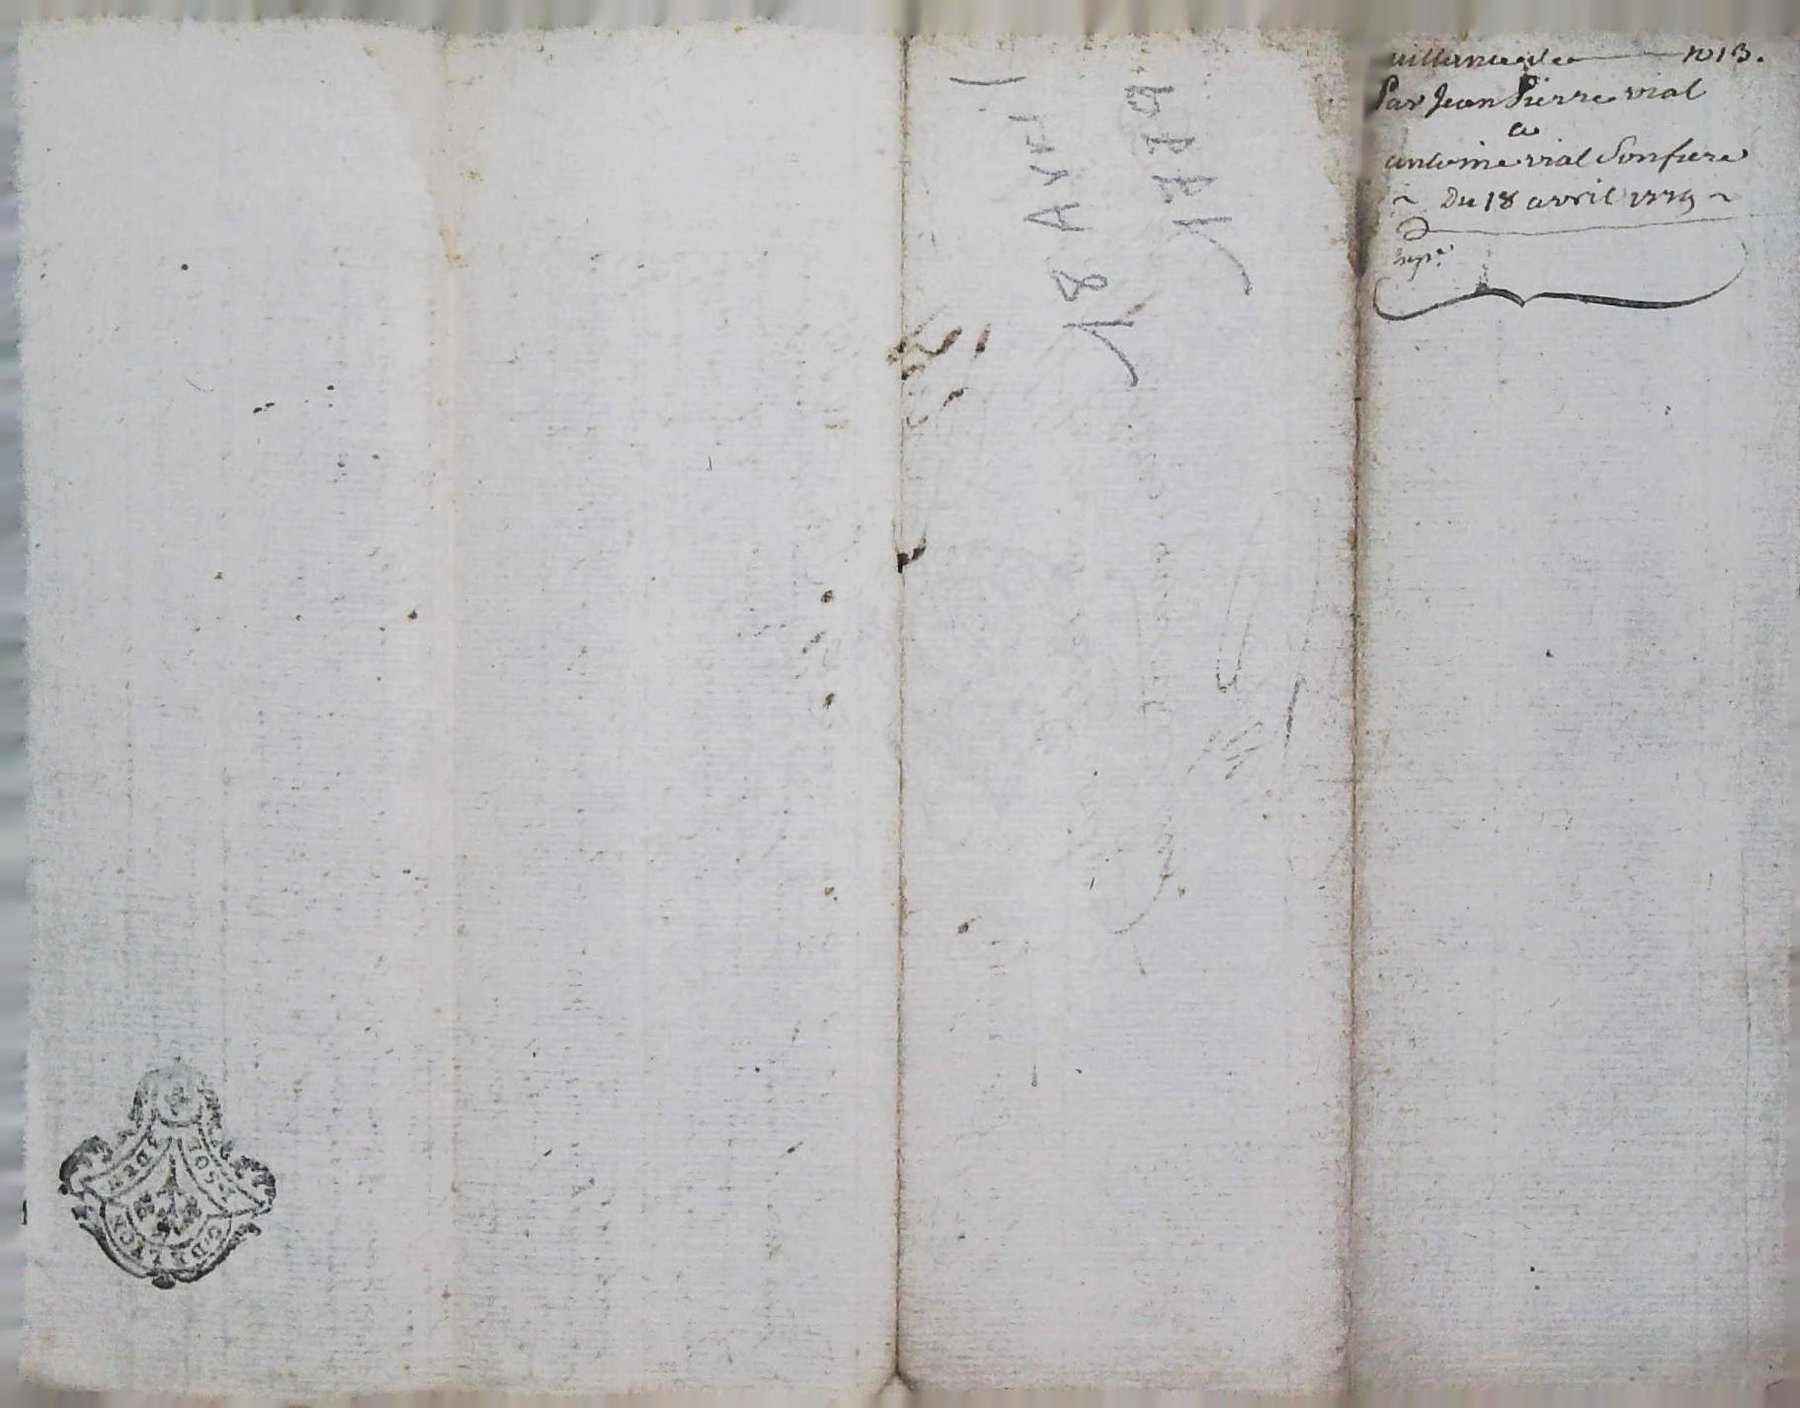 uittance de 101 3.
Par Jean Pierre vial
a
antoine vial Son frere
~ Du 18 avril 1779 ~
Exp.e
18 Avril
1779
2 SOLS
G. DE LYON